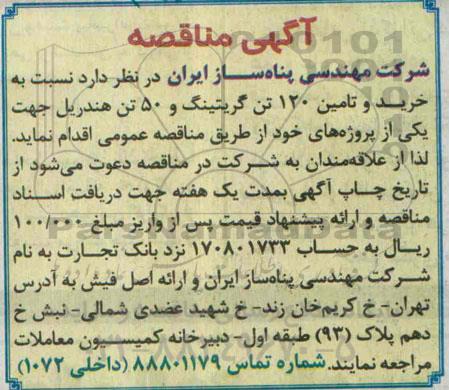 آگهی مناقصه
شرکت مهندسی پناه‌ساز ایران در نظر دارد نسبت به
خرید و تامین ۱۲۰ تن گریتینگ و ۵۰ تن هندریل جهت
یکی از پروژه‌های خود از طریق مناقصه عمومی اقدام نماید.
لذا از علاقه‌مندان به شرکت در مناقصه دعوت می‌شود از
تاریخ چاپ آگهی بمدت یک هفته جهت دریافت اسناد
مناقصه و ارائه پیشنهاد قیمت پس از واریز مبلغ ۱۰۰/۰۰۰
ریال به حساب ۱۷۰۸۰۱۷۳۳ نزد بانک تجارت به نام
شرکت مهندسی پناه‌ساز ایران و ارائه اصل فیش به آدرس
تهران- خ کریم‌خان زند- خ شهید عضدی شمالی- نبش خ
دهم پلاک (۹۳) طبقه اول- دبیرخانه کمیسیون معاملات
مراجعه نمایند. شماره تماس ۸۸۸۰۱۱۷۹ (داخلی ۱۰۷۲)